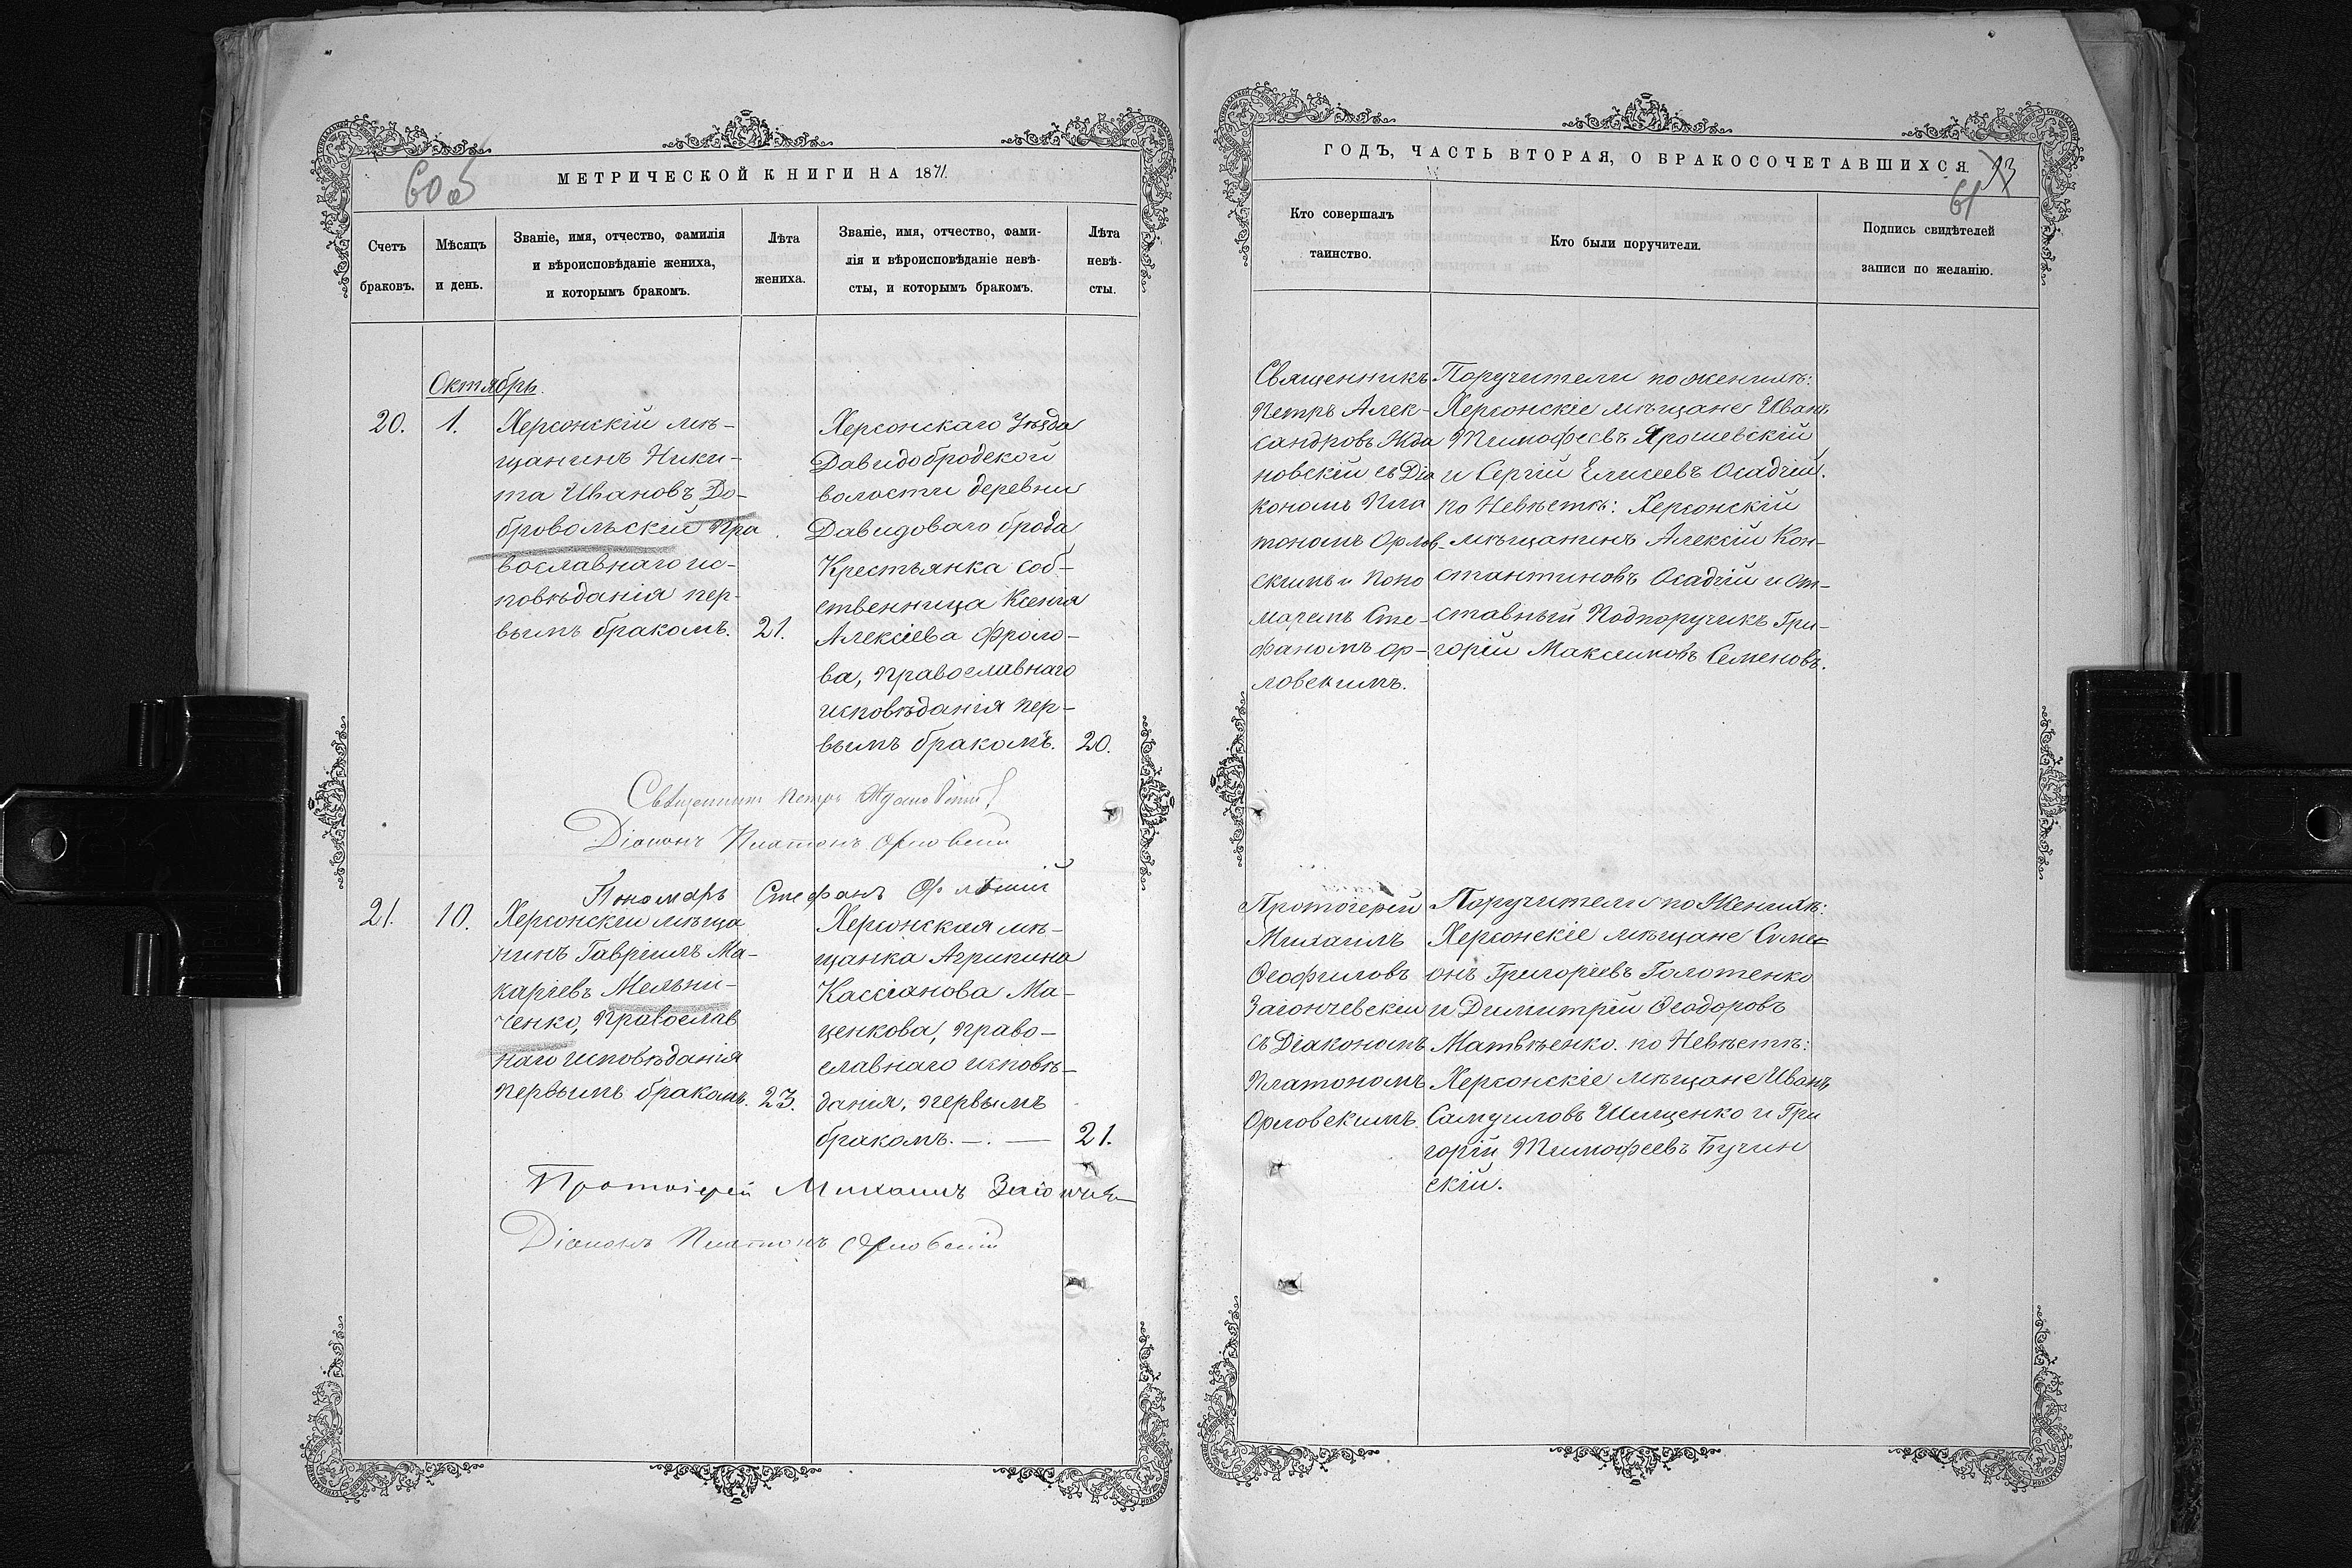 60об
МЕТРИЧЕСКОЙ КНИГИ НА 1871.
Счетъ
браковъ.
Мѣсяцъ
и день.
Званіе, имя, отчество, фамилія
и вѣроисповѣданіе жениха,
и которымъ бракомъ.
Лѣта
жениха.
Званіе, имя, отчество, фами-
лія и вѣроисповѣданіе невѣ-
сты, и которымъ бракомъ.
Лѣта
невѣ-
сты.
Октябрь.
20.
1.
Херсонскій мѣ-
щанинъ Ники-
та Ивановъ До-
бровольскій Пра
вославнаго ис-
повѣданія пер-
вымъ бракомъ.
21.
Херсонскаго Уѣзда
Давидобродской
волости деревни
Давидоваго брода
Крестьянка соб-
ственница Ксенія
Алексіева Фроло-
ва, православнаго
исповѣданія пер-
вымъ бракомъ.
20.
Священникъ Петръ Ждановскій
Діаконъ Платонъ Орловскій
Пономарь Стефанъ Орловскій
21.
10.
Херсонскій мѣща
нинъ Гавріилъ Ма-
каріевъ Мельни-
ченко, Православ
наго исповѣданія
первымъ бракомъ.
23.
Херсонская мѣ-
щанка Агрипина
Кассіанова Ма-
ценкова, право-
славнаго исповѣ-
данія, первымъ
бракомъ. —. —
21.
Протоіерей Михаилъ
Діаконъ Платонъ Орловскій
ГОДЪ, ЧАСТЬ ВТОРАЯ, О БРАКОСОЧЕТАВШИХСЯ.
61
Кто совершалъ
таинство.
Кто были поручители.
Подпись свидѣтелей
записи по желанію.
Священникъ
Петръ Алек-
сандровъ Жда
новскій съ Діа
кономъ Пла
тономъ Орлов-
скимъ и Поно
маремъ Сте-
фаномъ Ор-
ловскимъ.
Поручители по женихѣ:
Херсонскіе мѣщане Иванъ
Тимофеевъ Ярошевскій
и Сергій Елисеевъ Осадчій.
по Невѣстѣ: Херсонскій
мѣщанинъ Алексій Кон-
стантиновъ Осадчій и От-
ставный Подпоручикъ Гри-
горій Максимовъ Семеновъ.
Протоіерей
Михаилъ
Ѳеофиловъ
Заіончевскій
съ Діакономъ
Платономъ
Орловскимъ.
Поручители по Женихѣ:
Херсонскіе мѣщане Симе
онъ Григоріевъ Голотенко
и Димитрій Ѳеодоровъ
Матвѣенко. по Невѣстѣ:
Херсонскіе мѣщане Иванъ
Самуиловъ Шищенко и Гри
горій Тимофеевъ Бучин
скій.